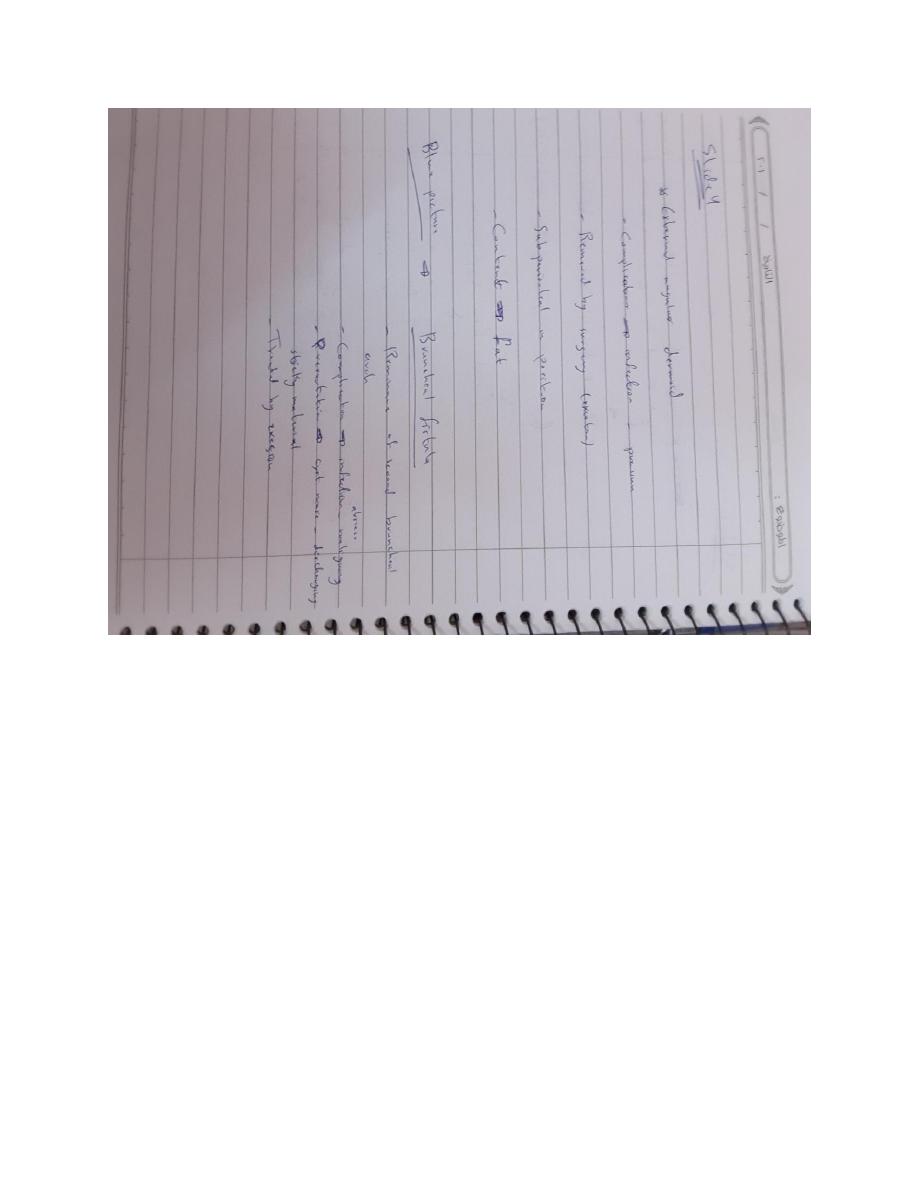 التاريخ / / ٢٠١ الموضوع :
Slide 4
* External angular dermoid
- Complication → infection - pressure
- Removed by surgery (excision)
- Subperiosteal in position
- Content → fat
Blue picture → Branchial fistula
- Remnant of second branchial
arch
- Complication → infection - malignancy
abscess
- Presentation → cyst mass - discharging
sticky material
- Treated by excision